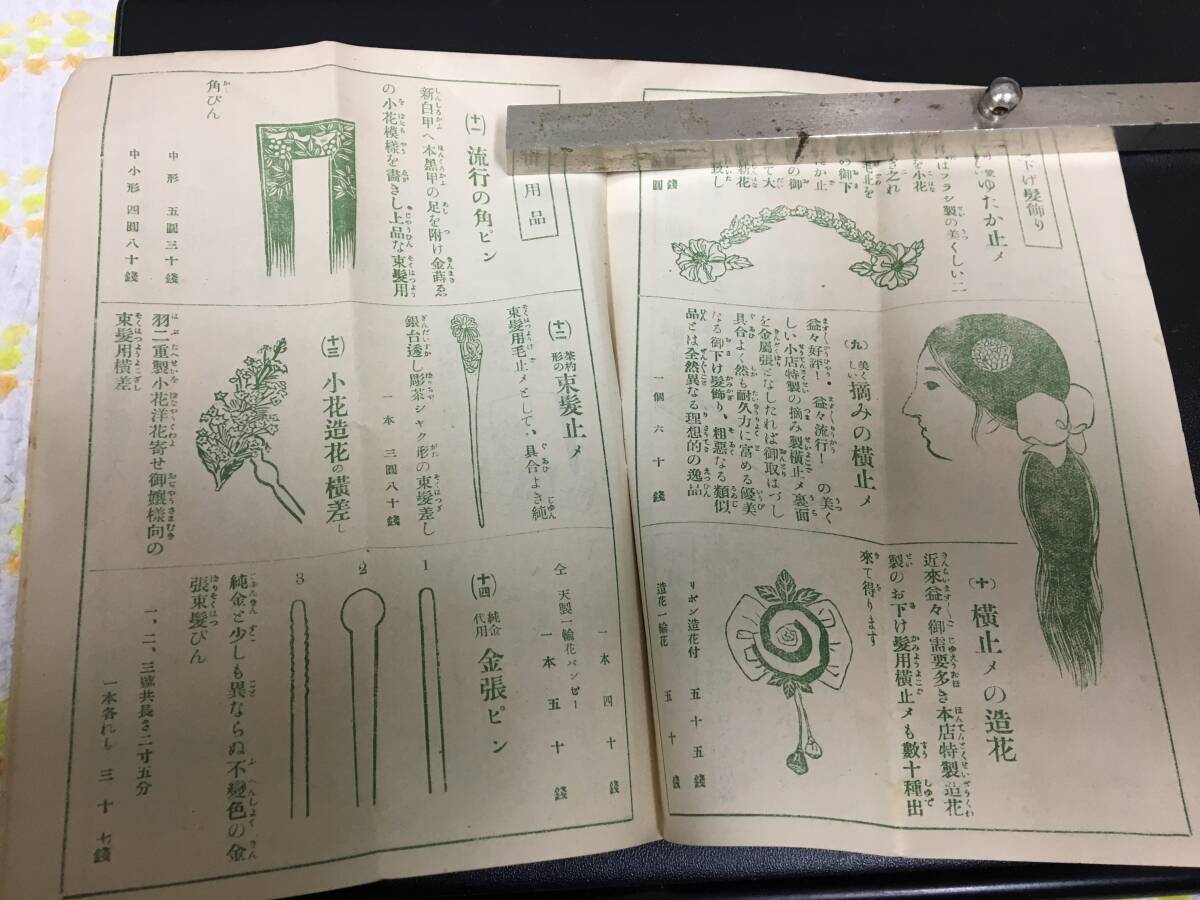 下げ髮飾り
ゆたか止メ
はフラシ製の美くしい二
を小花
き之れ
毛止を
の御下
か止
の御
て大
新花
致し
錢
圓
(九) 美くしい 摘みの橫止メ
益々好評! 益々流行! の美く
しい小店特製の摘み製橫止メ裏面
を金屬張となしたれば御取はづし
具合よく然も耐久力に富める優美
なる御下げ髮飾り、粗惡なる類似
品とは全然異なる理想的の逸品
一個 六十錢
(十) 橫止メの造花
近來益々御需要多き本店特製造花
製のお下げ髮用橫止メも數十種出
來て得ります
リボン造花付 五十五錢
造花一輪花 五十錢
用品
(十一) 流行の角ピン
新白甲へ本黑甲の足を附け金蒔ゑ
の小花模樣を畵きし上品な束髮用
角びん
中形 五圓三十錢
中小形 四圓八十錢
(十二) 茶杓形の 束髮止メ
束髮用毛止メとして、具合よき純
銀台透し彫茶シャク形の束髮差し
一本 三圓八十錢
(十三) 小花造花の橫差し
羽二重製小花洋花寄せ御孃樣向の
束髮用橫差
一本 四十錢
仝 天製一輪花パンピー
一本 五十錢
(十四) 純金代用 金張ピン
1
2
3
純金と少しも異ならぬ不變色の金
張束髮びん
一、二、三號共長さ二寸五分
一本各れも 三十七錢